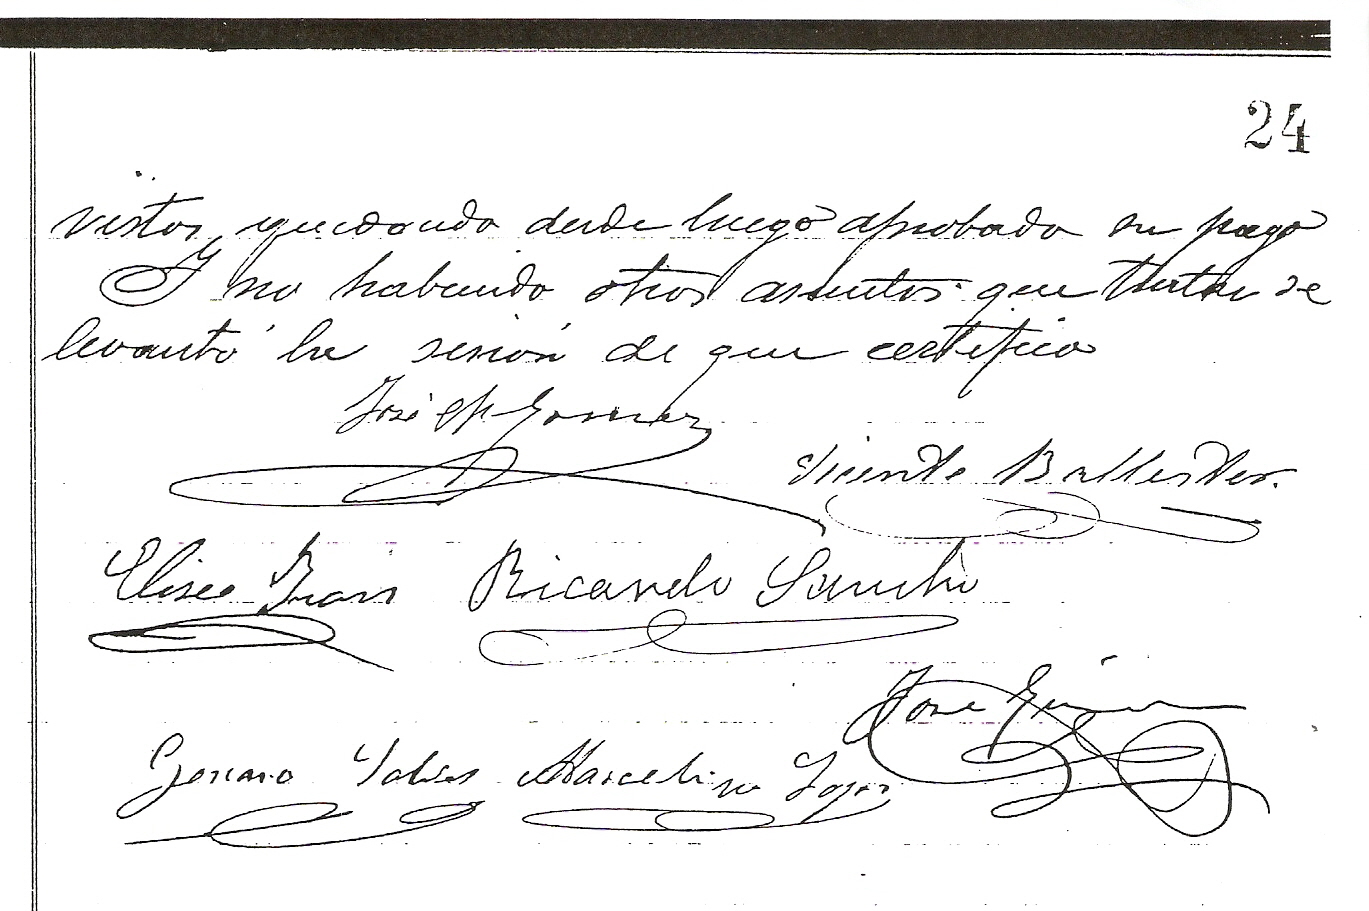 24
vistos, quedando desde luego aprobado su pago
Y no habiendo otros asuntos que tratar se
levantó la sesión de que certifico
José Mª Gomez
Vicente Ballester.
Eliseo Ricardo Sancho
José
Genaro Marcelino